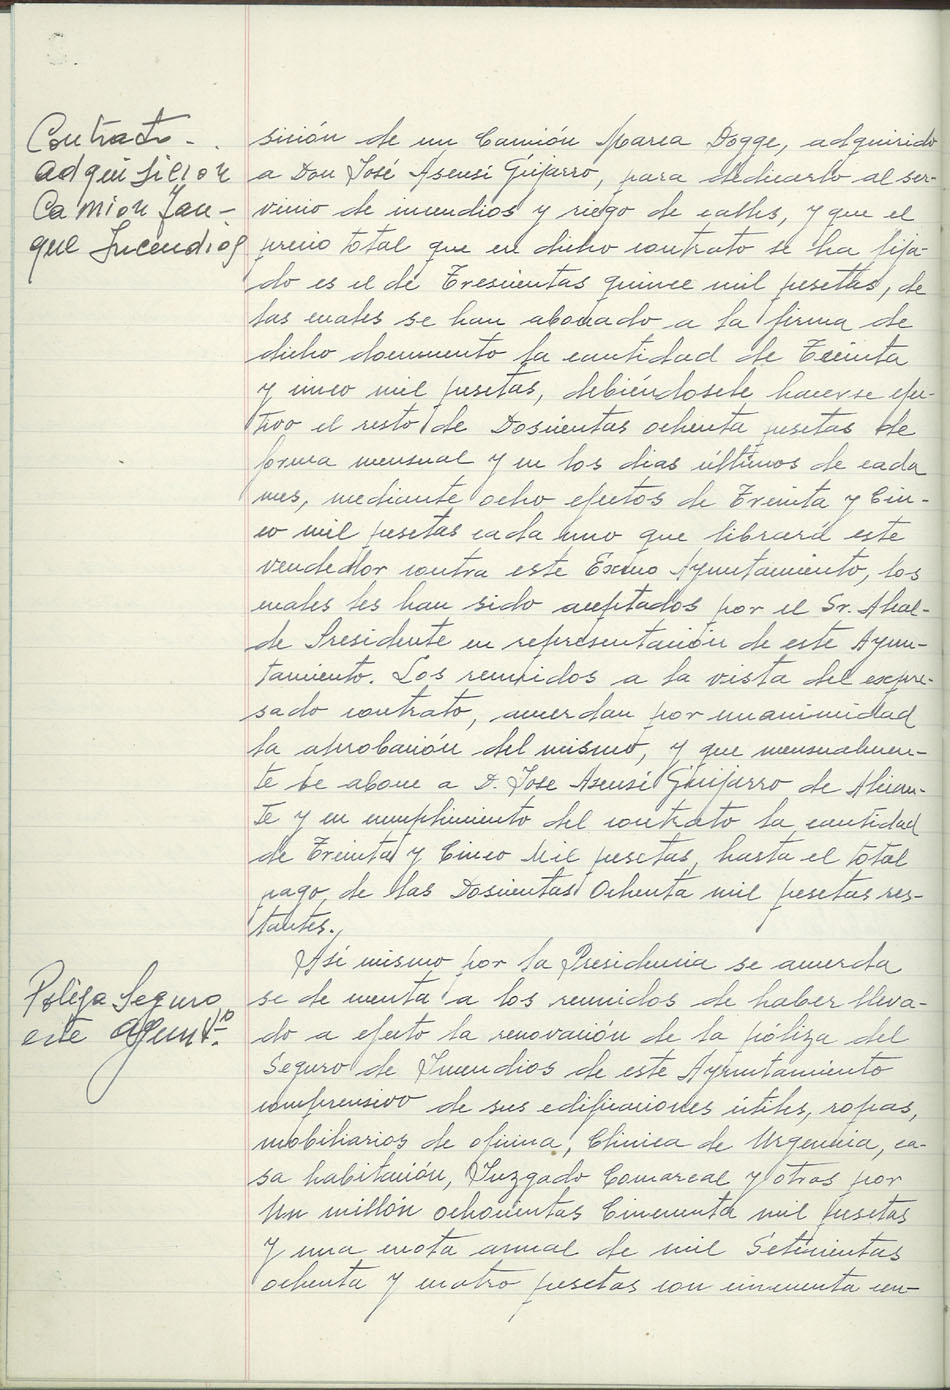 Contrato -.
adquisicion
Camion Tan-
que Incendios
sición de un Camión Marca Dogge, adquirido
a Don José Asensi Guijarro, para dedicarlo al ser-
vicio de incendios y riego de calles, y que el
precio total que en dicho contrato se ha fija-
do es el de Trescientas quince mil pesetas, de
las cuales se han abonado a la firma de
dicho documento la cantidad de Treinta
y cinco mil pesetas, debiéndosele hacerse efec-
tivo el resto de Doscientas ochenta pesetas de
forma mensual y en los dias últimos de cada
mes, mediante ocho efectos de Treinta y Cin-
co mil pesetas cada uno que librará este
vendedor contra este Excmo Ayuntamiento, los
cuales les han sido aceptados por el Sr. Alcal-
de Presidente en representación de este Ayun-
tamiento. Los reunidos a la vista del expre-
sado contrato, acuerdan por unanimidad
la aprobación del mismo, y que mensualmen-
te se abone a D. Jose Asensi Guijarro de Alican-
te y en cumplimiento del contrato la cantidad
de Treinta y Cinco Mil pesetas, hasta el total
pago, de las Doscientas Ochenta mil pesetas res-
tantes.
Poliza Seguro
este Ayunt.º
Así mismo por la Presidencia se acuerda
se de cuenta a los reunidos de haber lleva-
do a efecto la renovación de la póliza del
Seguro de Incendios de este Ayuntamiento
comprensivo de sus edificaciones útiles, ropas,
mobiliarios de oficina, Clinica de Urgencia, ca-
sa habitación, Juzgado Comarcal y otros por
Un millón ochocientas Cincuenta mil pesetas
y una cuota anual de mil Setecientas
ochenta y cuatro pesetas con cincuenta cen-